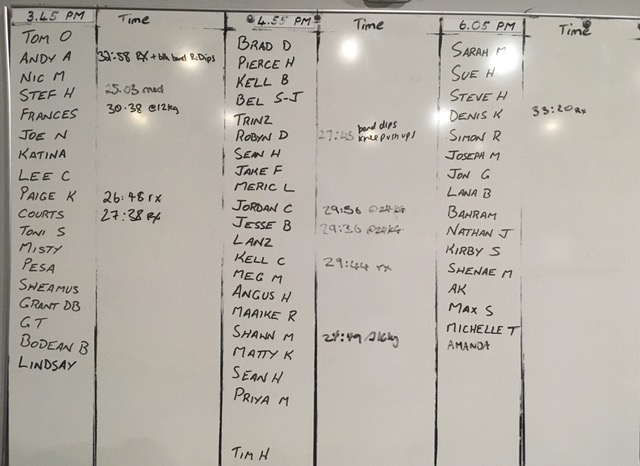 3.45 PM Time
TOM O
ANDY A 32:58 RX + blk band R.Dips
NIC M
STEF H 25.03 mod
FRANCES 30.38 @12kg
JOE N
KATINA
LEE C
PAIGE K 26:48 rx
COURTS 27:38 Rx
TONI S
MISTY
PESA
SHEAMUS
GRANT DB
GT
BODEAN B
LINDSAY
4.55 PM Time
BRAD D
PIERCE H
KELL B
BEL S-J
TRINZ
ROBYN D 27:45 band dips
knee push ups
SEAN H
JAKE F
MERIC L
JORDAN C 29:56 @24KG
JESSE B 29:36 @24KG
LANZ
KELL C 29:44 rx
MEG M
ANGUS H
MAAIKE R
SHAWN M
MATTY K
SEAN H
PRIYA M
TIM H
6.05 PM Time
SARAH M
SUE H
STEVE H
DENIS K 33:20 RX
SIMON R
JOSEPH M
JON G
LANA B
BAHRAM
NATHAN J
KIRBY S
SHENAE M
AK
MAX S
MICHELLE T
AMANDA